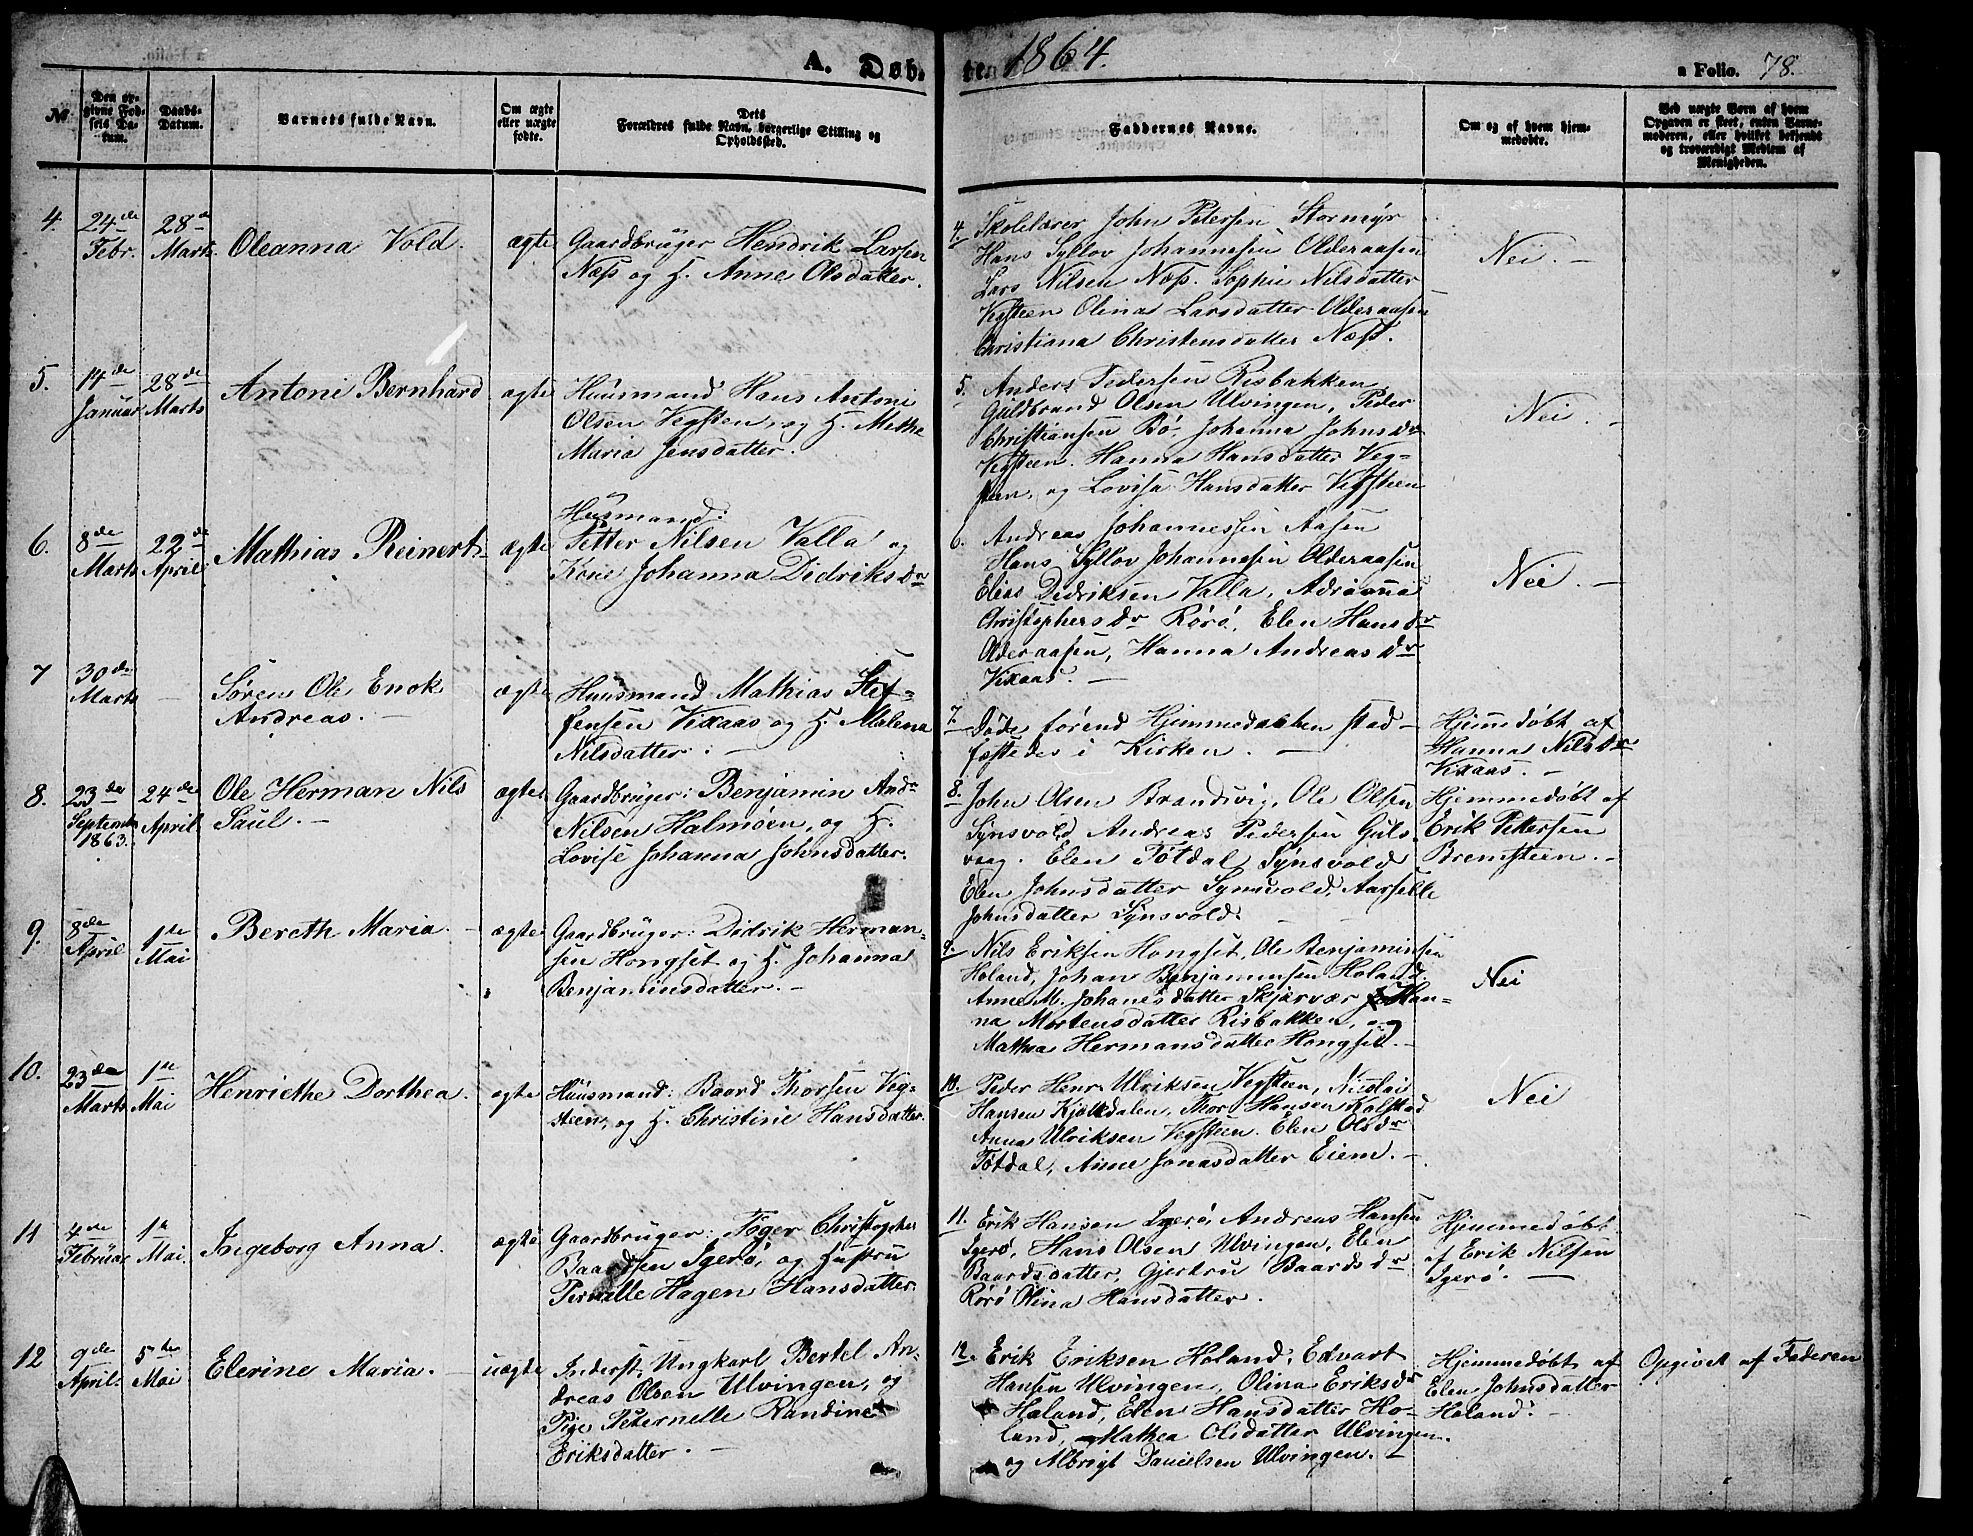 A. Døb- te 1864. a Folio. 78.
No.
Den opgivne Fødsels Datum.
Daabs-Datum.
Barnets fulde Navn.
Om ægte eller uægte fødte.
Dets Forældres fulde Navn, borgerlige Stilling og Opholdssted.
Faddernes Navne.
Om og af hvem hjemmedøbte.
Ved uægte Børn af hvem Opgaven er skeet, enten Barnemoderen, eller hvilket bekjendt og troværdigt Medlem af Menigheden.
4. 24de Febr. 28de Marts Oleanna Vold. ægte
Gaardbruger Hendrik Larsen
Næss og H. Anne Olsdatter.
4. Skolelærer John Petersen Stormyr
Hans Syllov Johannesen Olderaasen
Lars Nilsen Næss. Sophie Nilsdatter
Vegsteen Olina Larsdatter Olderaasen
Christiana Christensdatter Næss.
Nei. —
5. 14de Januar 28de Marts Antoni Bernhard ægte
Huusmand Hans Antoni
Olsen Vegsteen, og H. Methe
Maria Jensdatter.
5. Anders Pedersen Risbakken
Guldbrand Olsen Ulvingen, Peder
Christiansen Rø, Johanna Johnsdr
Vegsteen. Hanna Hansdatter Veg-
steen, og Lovisa Hansdatter Vegsteen
Nei. —
6. 8de Marts 22de April Mathias Reinert ægte
Husmand:
Petter Nilsen Valla og
Kone Johanna Didriksdr
6. Andreas Johannessen Aasen
Hans Syllov Johannesen Olderaasen
Elias Didriksen Valla, Adrianna
Christophersdr Rørø, Elen Hansdr
Olderaasen, Hanna Andreasdr
Vixaas. —
Nei. —
7 30de Marts — Søren Ole Enok
Andreas. — ægte
Huusmand Mathias Stef-
fensen Vixaas og H. Malena
Nilsdatter. —
7. Døde førend Hjemmedaaben stad-
fæstedes i Kirken. —
Hjemmedøbt af
Hanna Nilsdr
Vixaas. —
8. 23de September 1863. 24de April Ole Herman Nils
Paul. — ægte
Gaardbruger: Benjamin Andr
Nilsen Halmøen, og H.
Lovise Johanna Johnsdatter.
8. John Olsen Brandvig, Ole Olsen
Synsvold Andreas Pedersen Guls-
vaag. Elen Tøtdal Synsvold
Elen Johnsdatter Synsvold, Aarselle
Johnsdatter Synsvold.
Hjemmedøbt af
Erik Pettersen
Bremsteen. —
9. 8de April 1te Mai Bereth Maria. — ægte
Gaardbruger: Didrik Herman-
sen Hongset og H. Johanna
Benjaminsdatter. —
9. Nils Eriksen Hongset, Ole Benjaminsen
Holand, Johan Benjaminsen Holand.
Anne M. Johanesdatter Skjærvær Han-
na Mortensdatter Risbakken, og
Mathea Hermansdatter Hongset. —
Nei
10. 23de Marts 1te Mai Henriethe Dorthea. ægte
Huusmand: Baard Thorsen Veg-
steen, og H. Christine Hansdatter.
10. Peder Henr. Ulriksen Vegsteen, Nicolai
Hansen Kjølkdalen, Thor Hansen Kolstad
Anna Ulriksen Vegsteen. Elen Olsdr
Tøtdal, Anne Jonasdatter Eiem. —
Nei
11 4de Februar 1te Mai. Ingeborg Anna. ægte
Gaardbruger: Tøger Christopher
Baardsen Igerø, og Hustru
Pernelle Hagen Hansdatter.
11. Erik Hansen Igerø, Andreas Hansen
Igerø, Hans Olsen Ulvingen, Elen
Baardsdatter, Gjertru Baardsdr
Rørø Olina Hansdatter.
Hjemmedøbt
af Erik Nilsen
Igerø. —
12 9de April. 5te Mai Elerine Maria. — uægte
Inderst, Ungkarl Bertel An-
dreas Olsen Ulvingen, og
Pige Peternelle Randine
Eriksdatter. —
12. Erik Eriksen Holand, Edvart
Hansen Ulvingen, Olina Eriksdr
Holand, Elen Hansdatter Ho-
land, Mathea Olsdatter Ulvingen.
og Albrigt Danielsen Ulvingen. —
Hjemmedøbt af
Elen Johnsdatter
Holand. —
Opgivet af Faderen